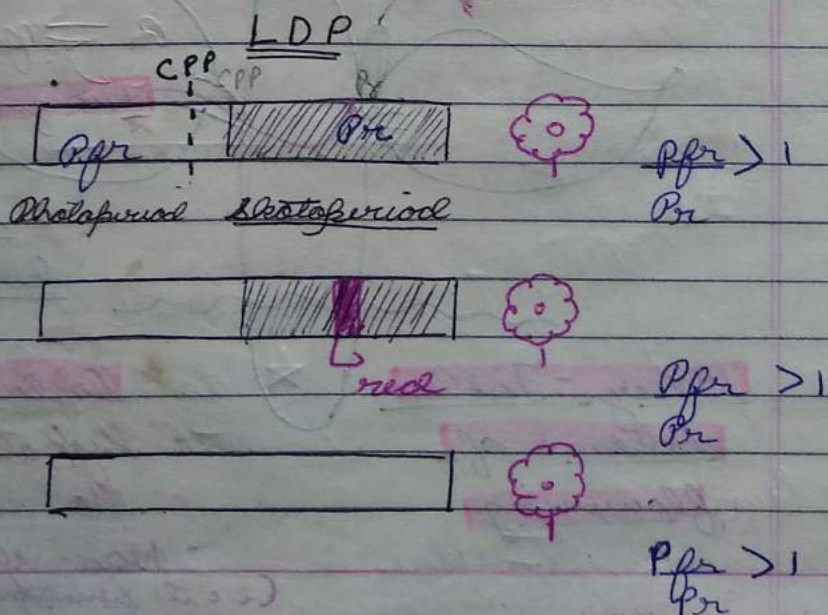 LDP
CPP
CPP Pr
Pfr Pr
Pfr > 1
Pr
Photoperiod Skotoperiod
red
Pfr > 1
Pr
Pfr > 1
Pr